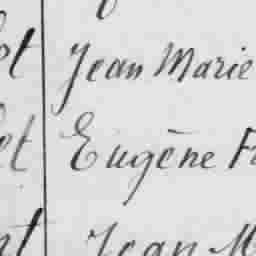 et Jean Marie
et Eugène F
Jean M